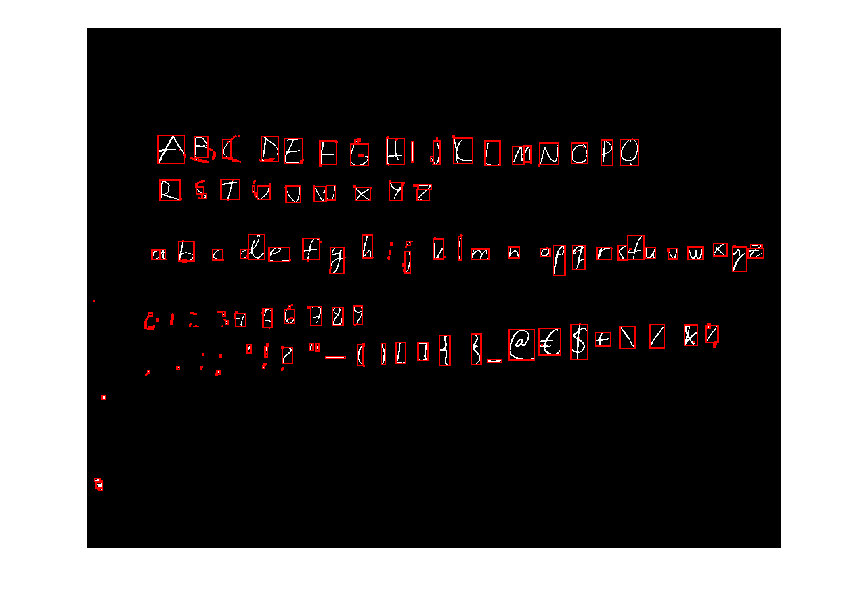 A B C D E F G H I J K L M N O P Q
R S T U V W X Y Z
a b c d e f g h i j k l m n o p q r s t u v w x y z
0 1 2 3 4 5 6 7 8 9
, . : ; " ! ? " - ( ) [ ] { } _ @ € $ + \ / & %